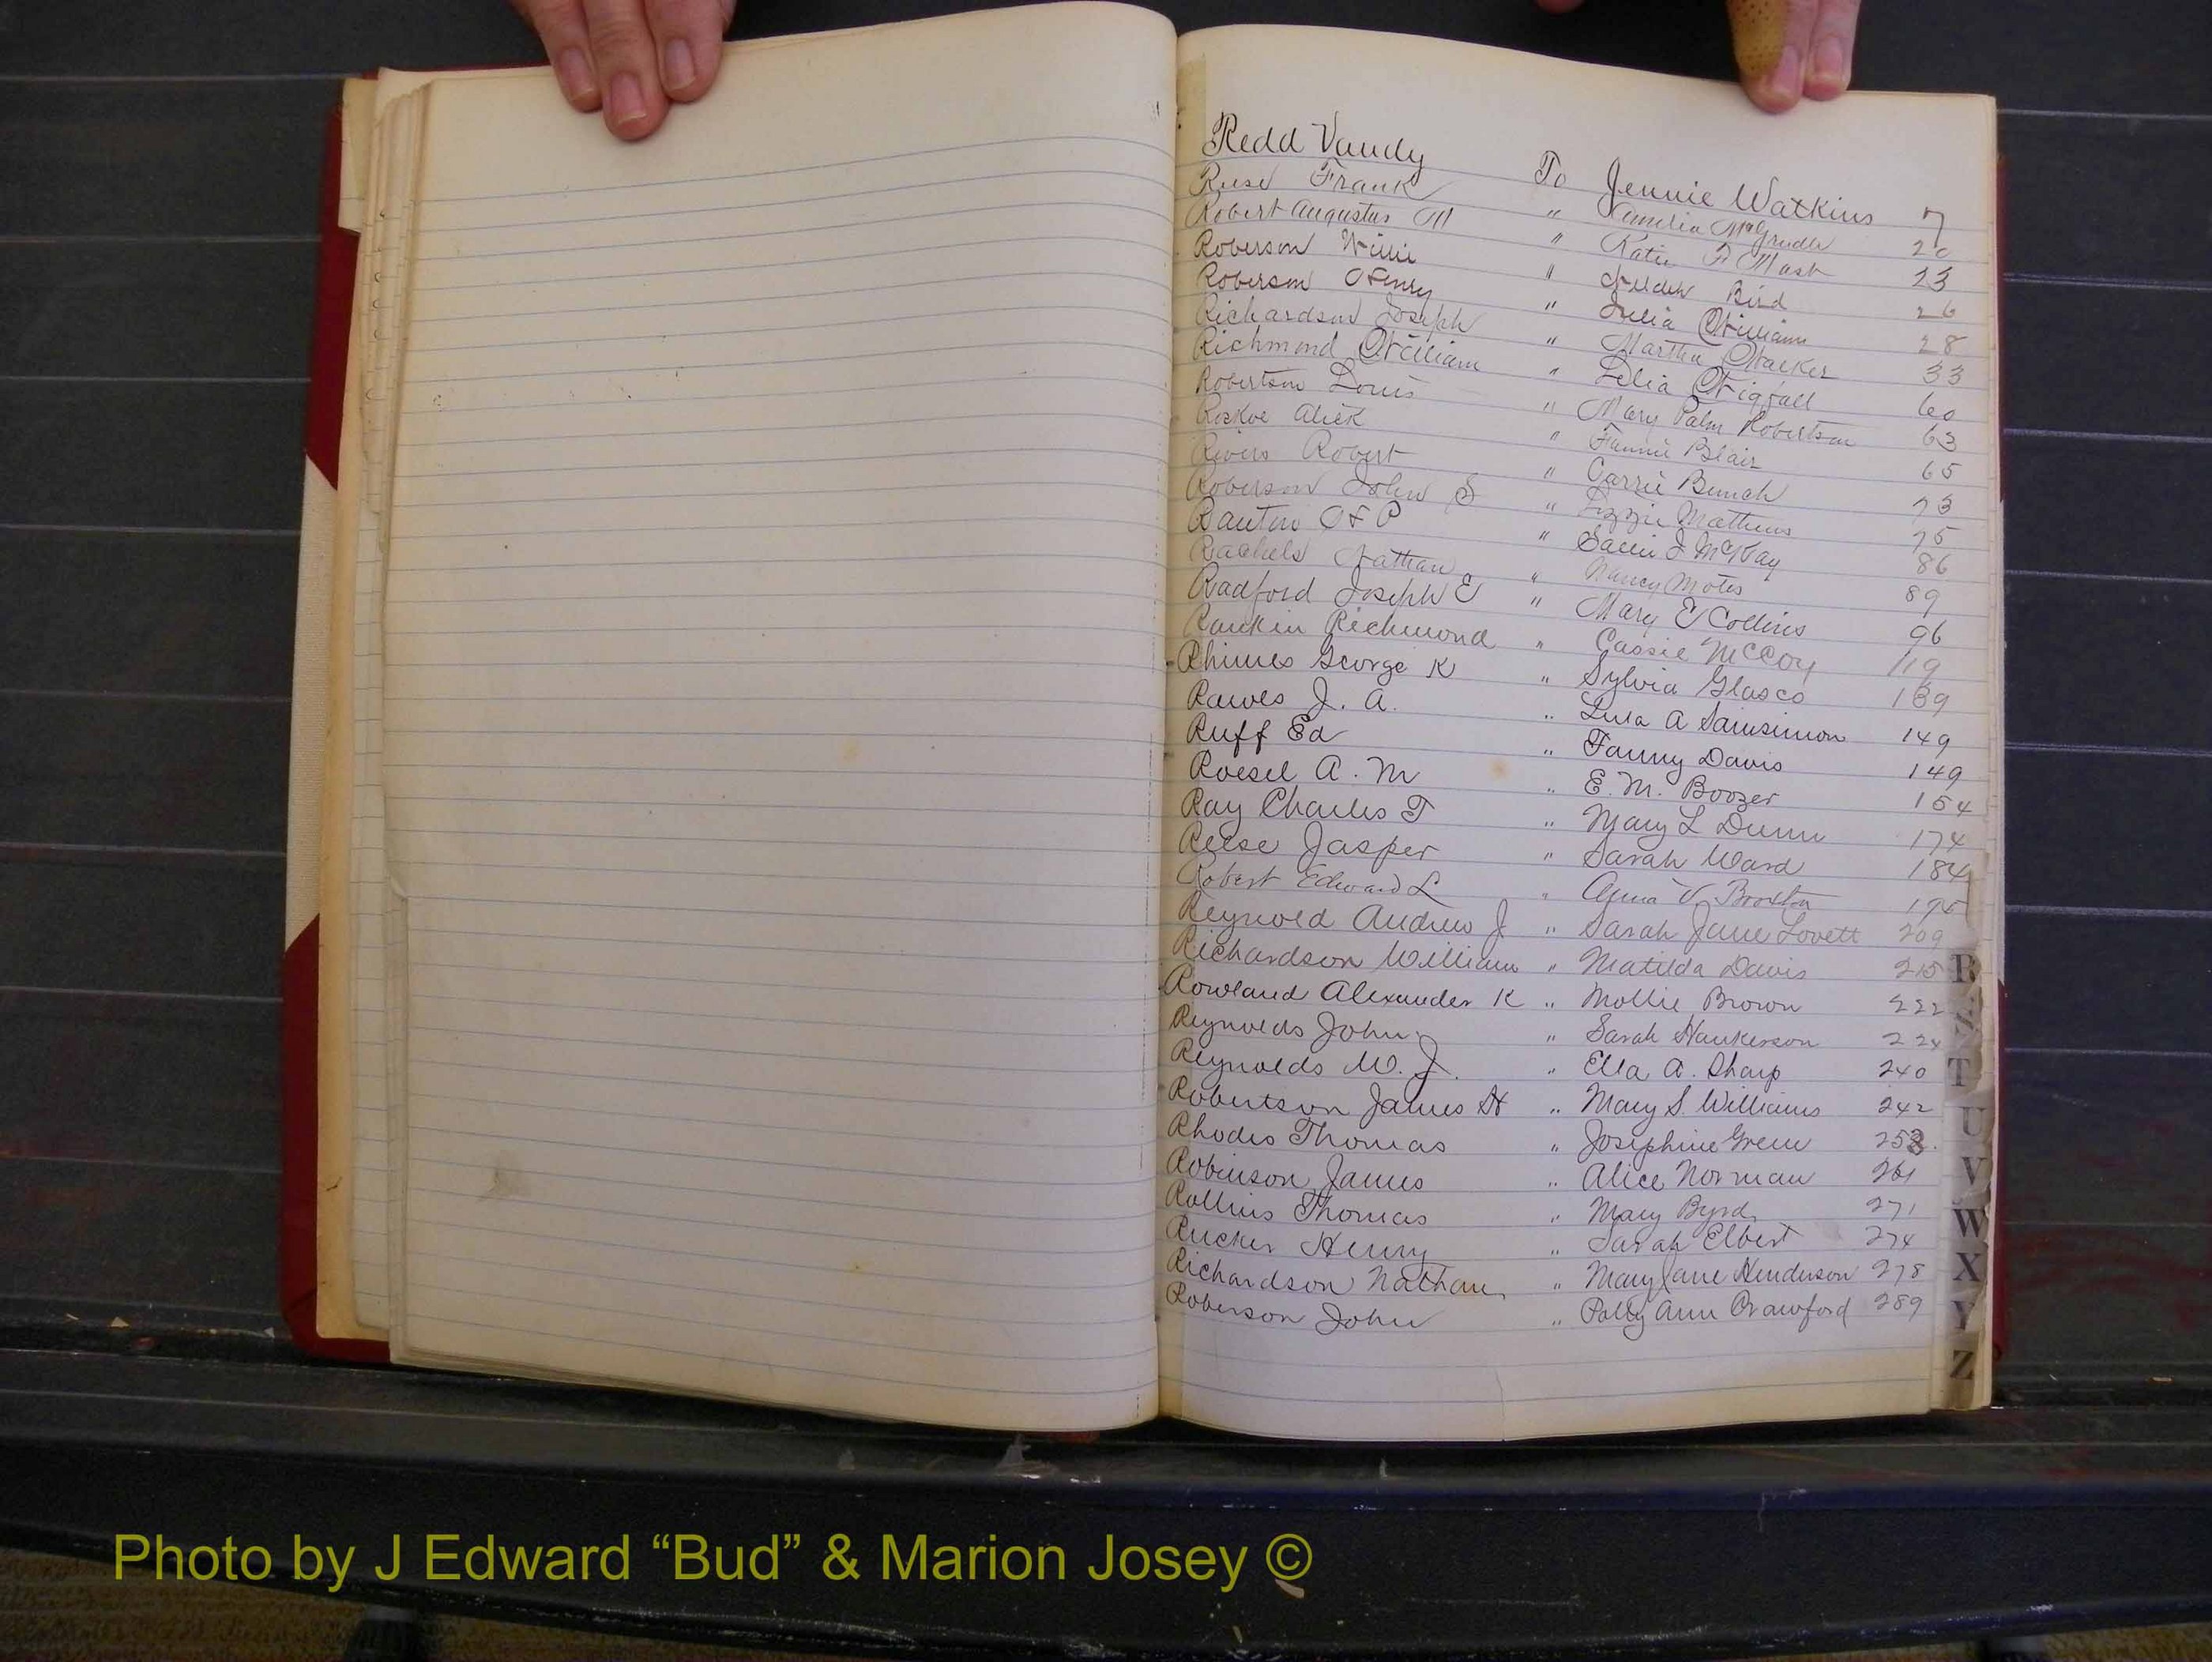 Redd Vandy To Jennie Watkins 7
Ruse Frank " Amelia McGruder 20
Robert Augustus M " Katie F Mash 23
Roberson Willie " Bird 26
Roberson Henry " Julia William 28
Richardson Joseph " Martha Walker 33
Richmond William " Lelia Wigfall 60
Robertson Louis " Mary Palm Robertson 63
Roskoe Alick " Fannie Blair 65
Rivers Robert " Carrie Bunch 73
Roberson John S " Lizzie Mathews 75
Ranton H P " Sallie J McKay 86
Rachels Nathan " Nancy Motes 89
Radford Joseph E " Mary E Collins 96
Rankin Richmond " Cassie McCoy 119
Rhimes George K " Sylvia Glasco 139
Rawls J. A. " Lula A Samsimon 149
Ruff Ed " Fanny Davis 149
Roesel A. M " E. M. Boozer 154
Ray Charles T " Mary L Dunn 174
Reese Jasper " Sarah Ward 184
Robert Edward L " Anna V Broxton 195
Reynold Andrew J " Sarah Jane Lovett 209
Richardson William " Matilda Davis 215
Rowland Alexander K " Mollie Brown 222
Reynolds John " Sarah Hankerson 224
Reynolds W. J. " Ella A. Sharp 240
Robertson James H " Mary S. Williams 242
Rhodes Thomas " Josephine Green 253.
Robinson James " Alice Norman 261
Rollins Thomas " Mary Byrd 271
Rucker Henry " Sarah Elbert 274
Richardson Nathan " Mary Jane Henderson 278
Roberson John " Polly Ann Crawford 289
R
S
T
U
V
W
X
Y
Z
Photo by J Edward “Bud” & Marion Josey ©